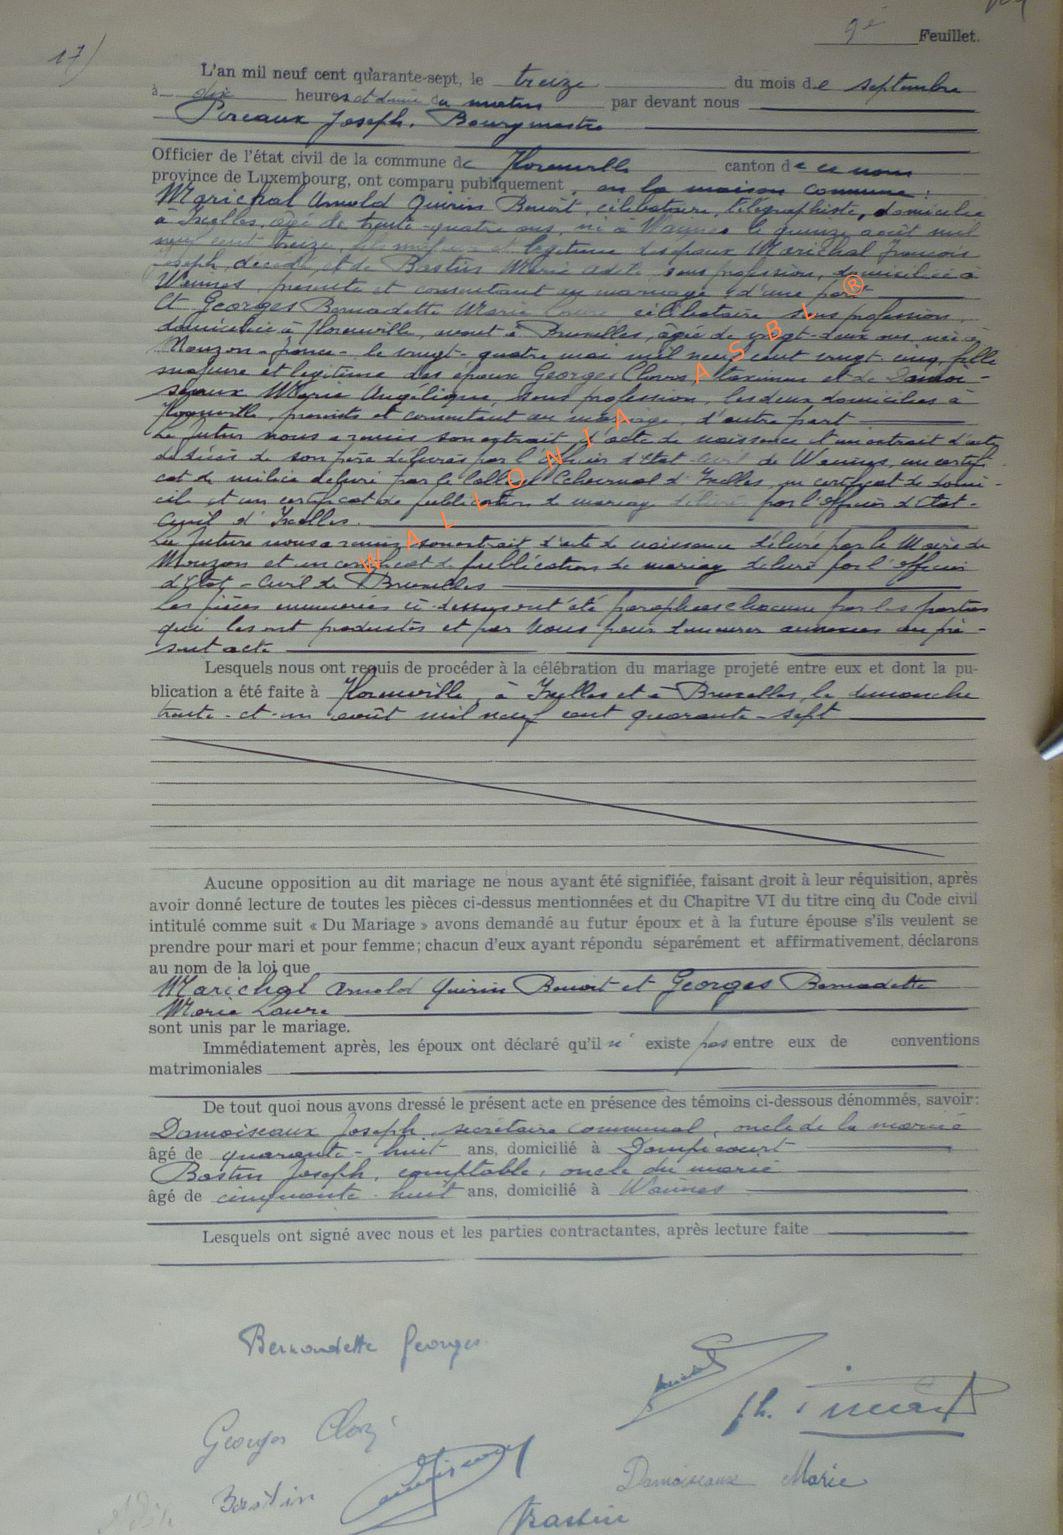 9e Feuillet.
17)
L'an mil neuf cent quarante-sept, le treize du mois de septembre
à dix heures et demie du matin par devant nous
Pireaux Joseph, Bourgmestre
Officier de l'état civil de la commune de Florenville canton de ce nom
province de Luxembourg, ont comparu publiquement, en la maison commune:
Marichal Arnold Quirin Benoît, célibataire, télégraphiste, domicilié
à Ixelles, âgé de trente-quatre ans, né à Wannes le quinze août mil
neuf cent treize, fils majeur et légitime des époux Marichal François
Joseph, décédé, et de Bastin Marie Adèle, sans profession, domiciliée à
Wannes, présente et consentant au mariage, d'une part
Et Georges Bernadette Marie Laure célibataire sans profession,
domiciliée à Florenville, avant à Bruxelles, âgée de vingt-deux ans, née à
Mouzon - France - le vingt-quatre mai mil neuf cent vingt-cinq, fille
majeure et légitime des époux Georges Clovis, et de Damoi-
seaux Marie Angélique, sans profession, les deux domiciliés à
Florenville, présents et consentant au mariage, d'autre part
Le futur nous a remis son extrait d'acte de naissance et un extrait d'acte
de décès de son père délivrés par l'officier d'Etat civil de Wannes, un certifi-
cat de milice délivré par le Collège Echevinal d'Ixelles, un certificat de domi-
cile et un certificat de publication de mariage délivrés par l'officier d'Etat-
Civil d'Ixelles.
La future nous a remis son extrait d'acte de naissance délivré par le Maire de
Mouzon et un certificat de publication de mariage délivré par l'officier
d'Etat-Civil de Bruxelles
Les pièces énumérées ci-dessus ont été paraphées chacune par les parties
qui les ont produites et par Nous pour demeurer annexées au pré-
sent acte
Lesquels nous ont requis de procéder à la célébration du mariage projeté entre eux et dont la pu-
blication a été faite à Florenville, à Ixelles et à Bruxelles, le dimanche
trente-et-un août mil neuf cent quarante-sept
WALLONIA ASBL ®
Aucune opposition au dit mariage ne nous ayant été signifiée, faisant droit à leur réquisition, après
avoir donné lecture de toutes les pièces ci-dessus mentionnées et du Chapitre VI du titre cinq du Code civil
intitulé comme suit « Du Mariage » avons demandé au futur époux et à la future épouse s'ils veulent se
prendre pour mari et pour femme; chacun d'eux ayant répondu séparément et affirmativement, déclarons
au nom de la loi que
Marichal Arnold Quirin Benoit et Georges Bernadette
Marie Laure
sont unis par le mariage.
Immédiatement après, les époux ont déclaré qu'il n' existe pas entre eux de conventions
matrimoniales
De tout quoi nous avons dressé le présent acte en présence des témoins ci-dessous dénommés, savoir:
Damoiseaux Joseph, secrétaire communal, oncle de la mariée
âgé de quarante-huit ans, domicilié à Dampicourt
Bastin Joseph, comptable, oncle du marié
âgé de cinquante-huit ans, domicilié à Wannes
Lesquels ont signé avec nous et les parties contractantes, après lecture faite
Bernadette Georges
Georges Clovis
Damoiseaux Marie
Bastin
Bastin